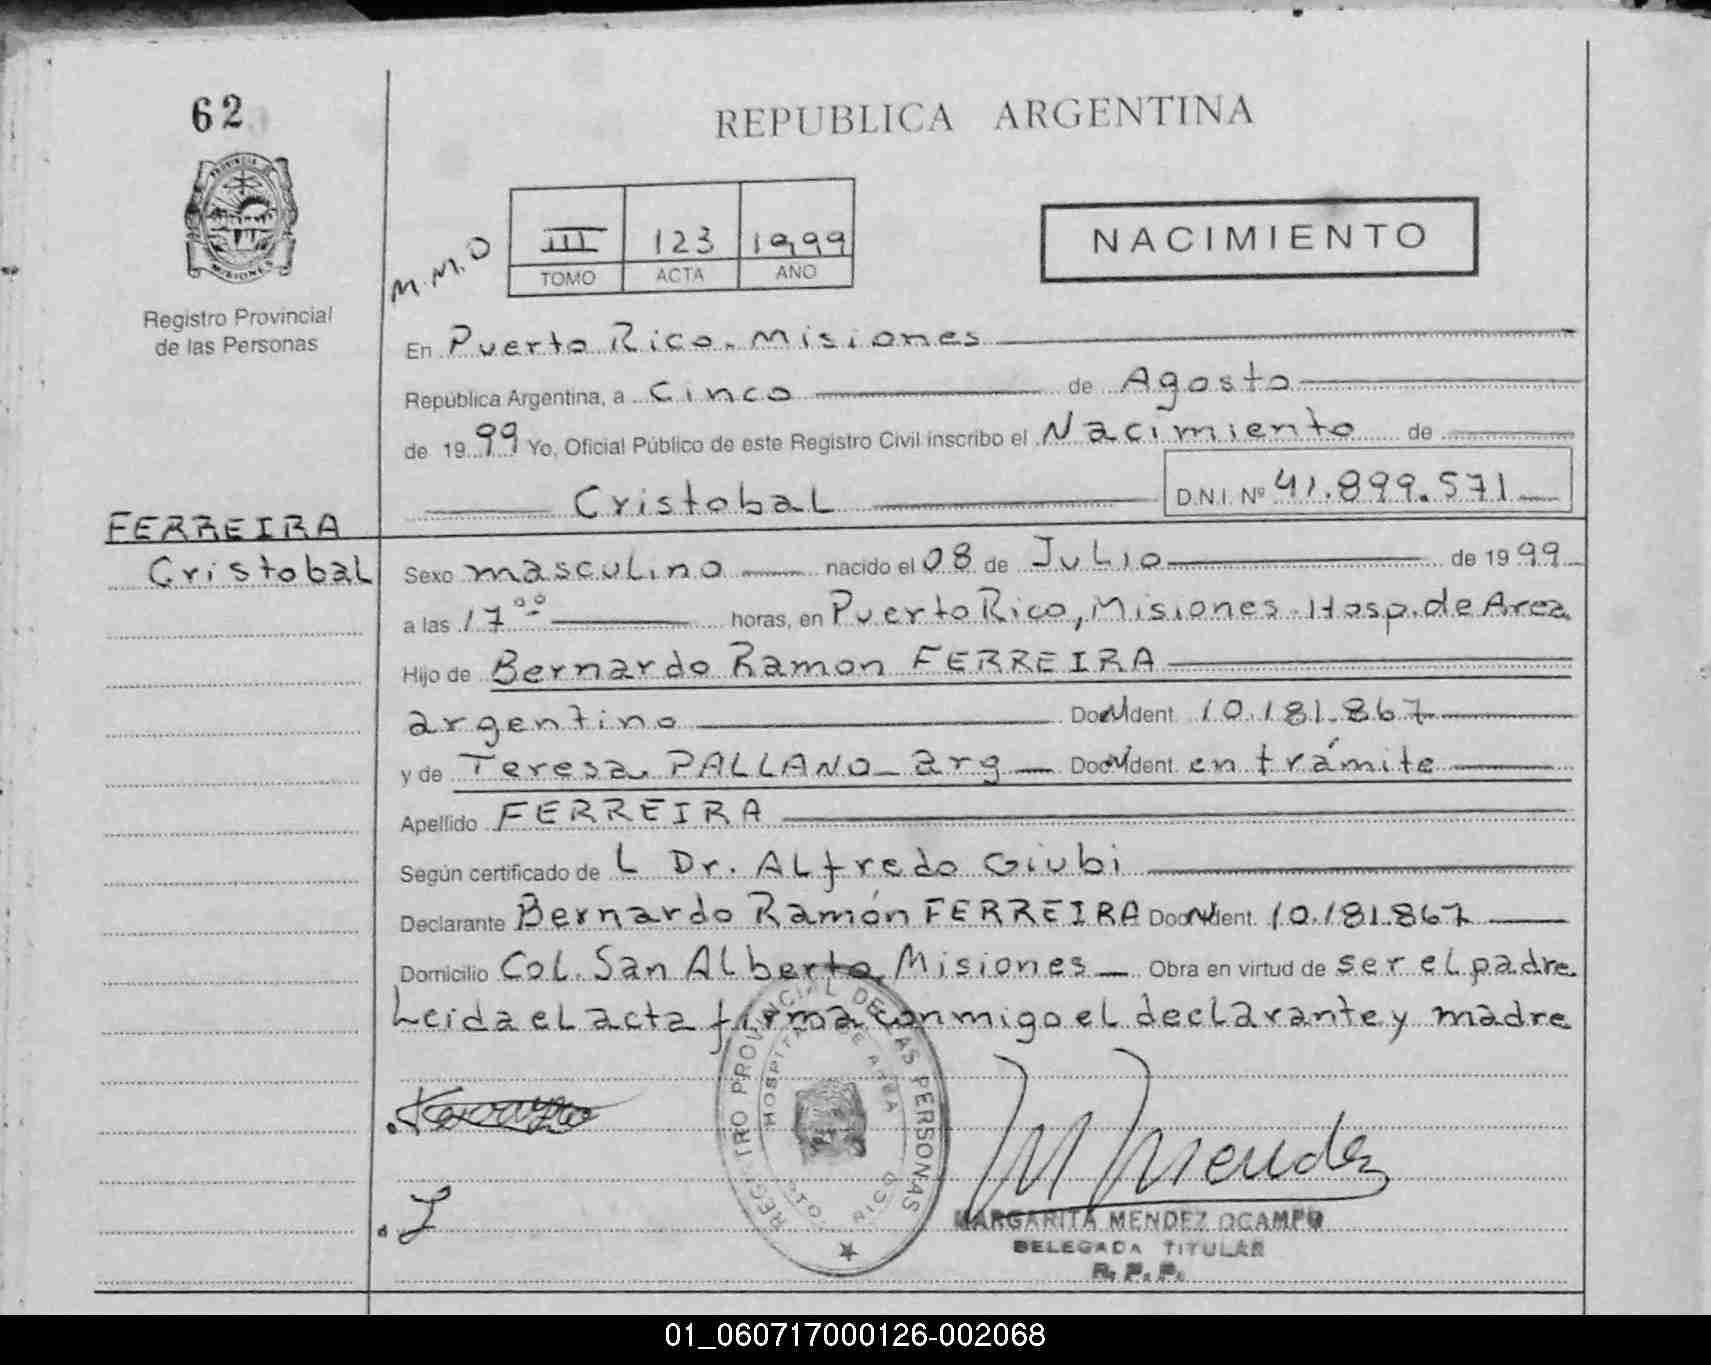 62
REPUBLICA ARGENTINA
PROVINCIA DE MISIONES
Registro Provincial
de las Personas
M.M.O
III 123 1999
TOMO ACTA AÑO
NACIMIENTO
En Puerto Rico. Misiones
República Argentina, a Cinco de Agosto
de 1999 Yo, Oficial Público de este Registro Civil inscribo el Nacimiento de
Cristobal D.N.I. Nº 41.899.571
FERREIRA
Cristobal
Sexo masculino nacido el 08 de Julio de 1999
a las 17°° horas, en Puerto Rico, Misiones. Hosp. de Area
Hijo de Bernardo Ramon FERREIRA
argentino Doc. Ident. 10.181.867
y de Teresa PALLANO_ arg Doc. Ident. en trámite
Apellido FERREIRA
Según certificado de L Dr. Alfredo Giubi
Declarante Bernardo Ramón FERREIRA Doc. Ident. 10.181.867
Domicilio Col. San Alberto, Misiones Obra en virtud de ser el padre
Leida el acta firma conmigo el declarante y madre
REGISTRO PROVINCIAL DE LAS PERSONAS
HOSPITAL DE AREA
PTO. RICO
M Mendez
MARGARITA MENDEZ OCAMPO
DELEGADA TITULAR
R. P. P.
01_060717000126-002068